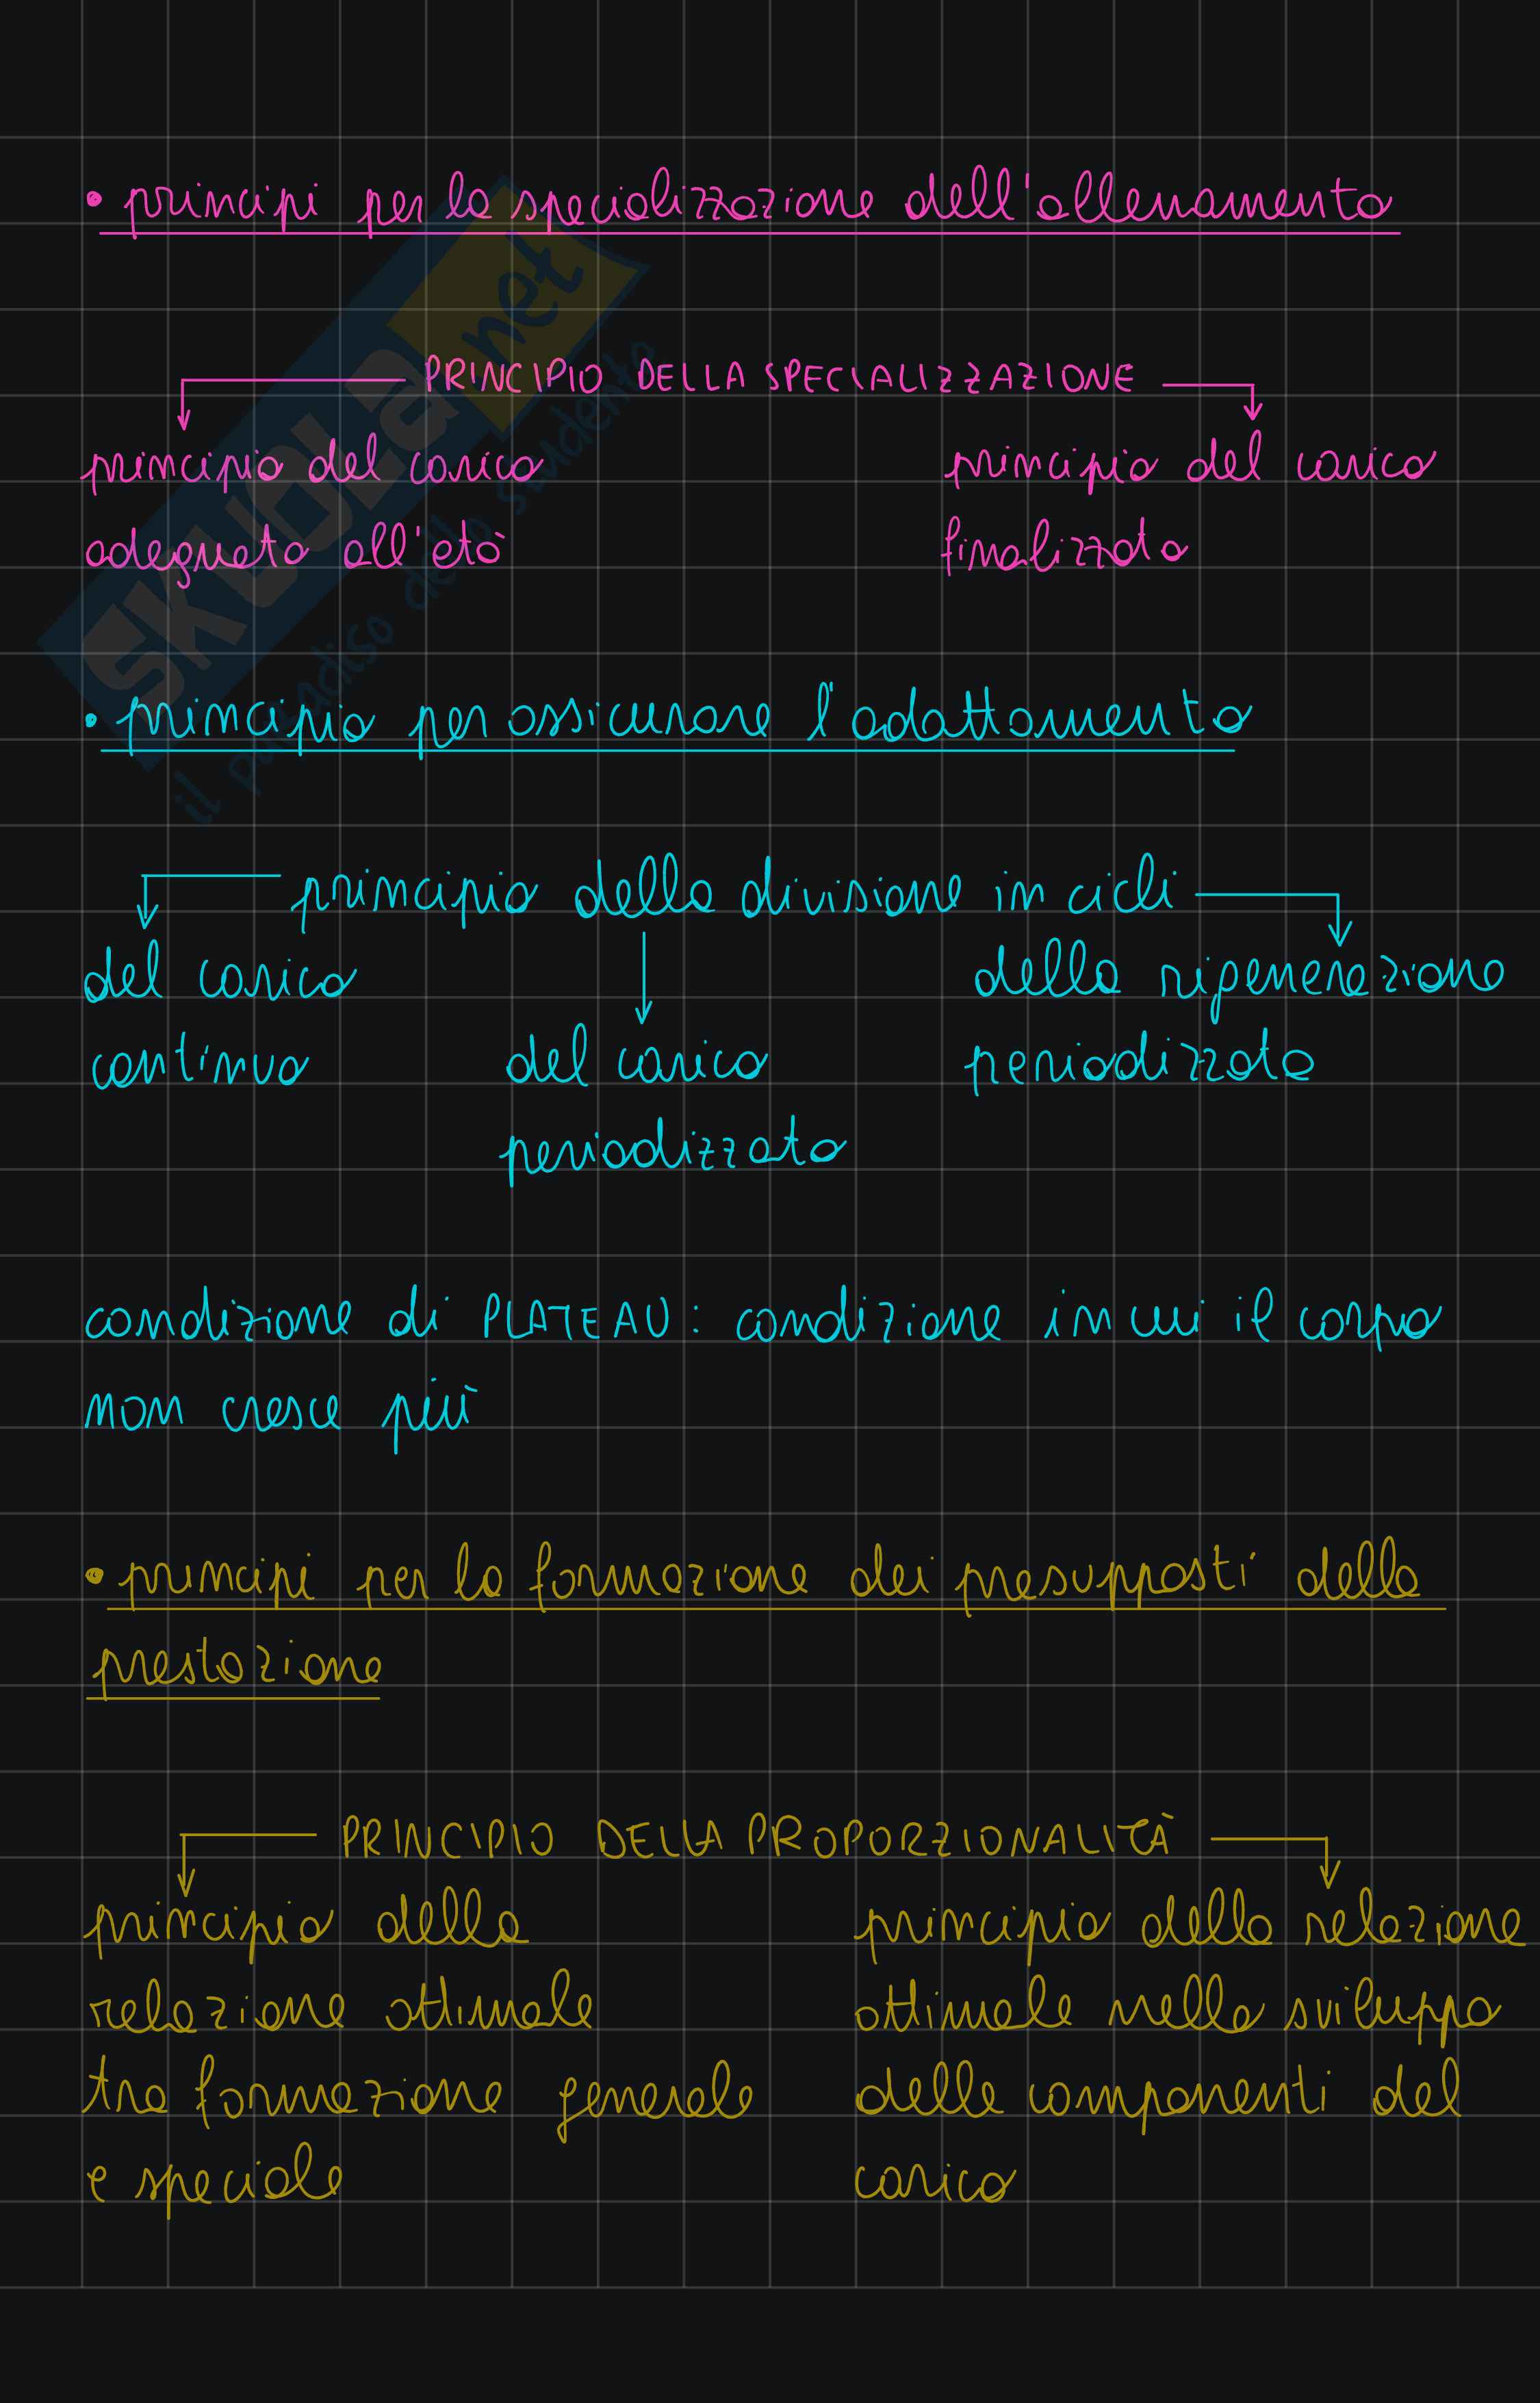 • principi per la specializzazione dell'allenamento
PRINCIPIO DELLA SPECIALIZZAZIONE
principio del carico
adeguato all'età
principio del carico
finalizzato
• principio per assicurare l'adattamento
principio della divisione in cicli
del carico
continuo
del carico
periodizzato
della rigenerazione
periodizzata
condizione di PLATEAU: condizione in cui il corpo
non cresce più
• principi per la formazione dei presupposti della
prestazione
PRINCIPIO DELLA PROPORZIONALITÀ
principio della
relazione ottimale
tra formazione generale
e speciale
principio della relazione
ottimale nello sviluppo
delle componenti del
carico
SKUOLA.net
il paradiso dello studente